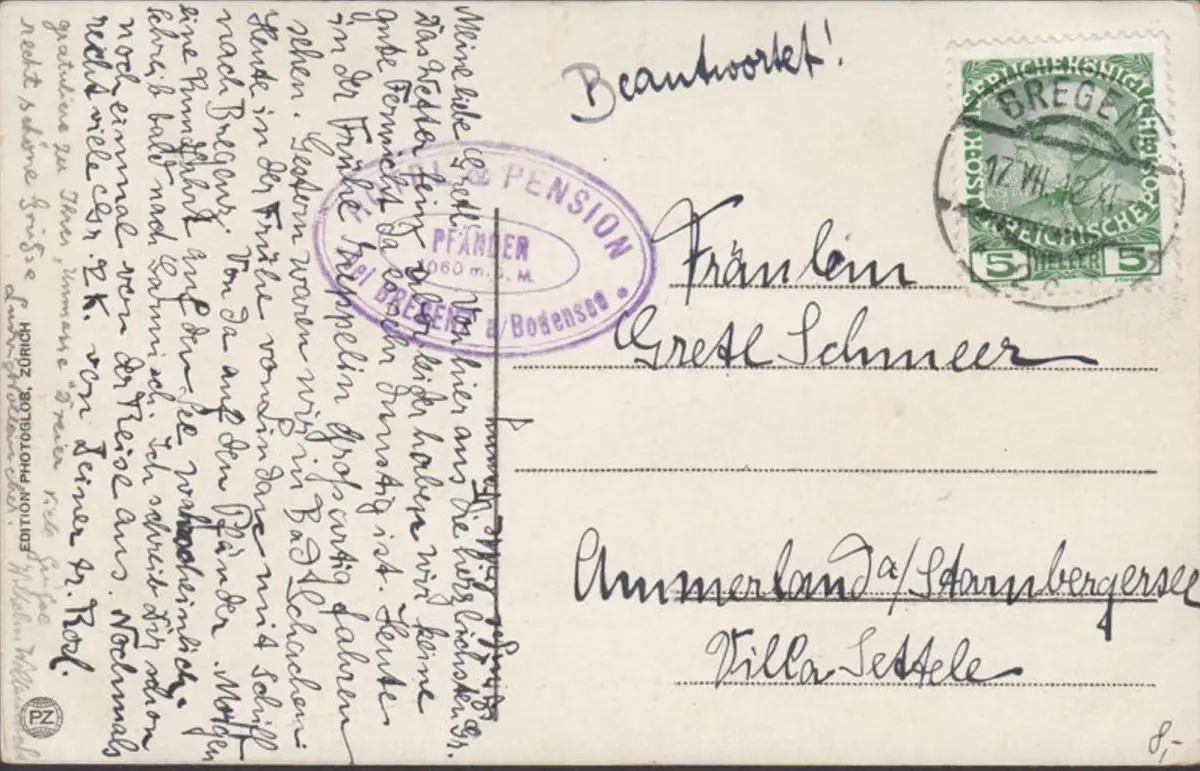 Beantwortet!
KAISERLICHE KÖNIGLICHE
ÖSTERREICHISCHE POST
5 HELLER 5
BREGENZ
17. VII. 12 XI
HOTEL & PENSION
PFÄNDER
1060 m. ü. M.
bei BREGENZ a/Bodensee
Fräulein
Gretl Schmeer
Ammerland a/Starnbergersee
Villa Settele
8,-
Meine liebe Gretl! Von hier aus die herzlichsten Gr.
Das Wetter fein aber leider haben wir keine
gute Fernsicht da es sehr dunstig ist. Heute
in der Frühe Zeppelin großartig fahren
sehen. Gestern waren wir in Bad Schachen
Heute in der Frühe von Lindau mit Schiff
nach Bregenz. Von da auf den Pfänder. Morgen
eine Rundfahrt auf dem See wahrscheinlich
schreib bald nach Garmisch. Ich schreib Dir schon
noch einmal von der Reise aus. Nochmals
recht viele Gr. & K. von Deiner tr. Rosl.
gratuliere zu Ihrer "Unmasse" Dreier viele Grüße
recht schöne Grüße
EDITION PHOTOGLOB, ZÜRICH
PZ